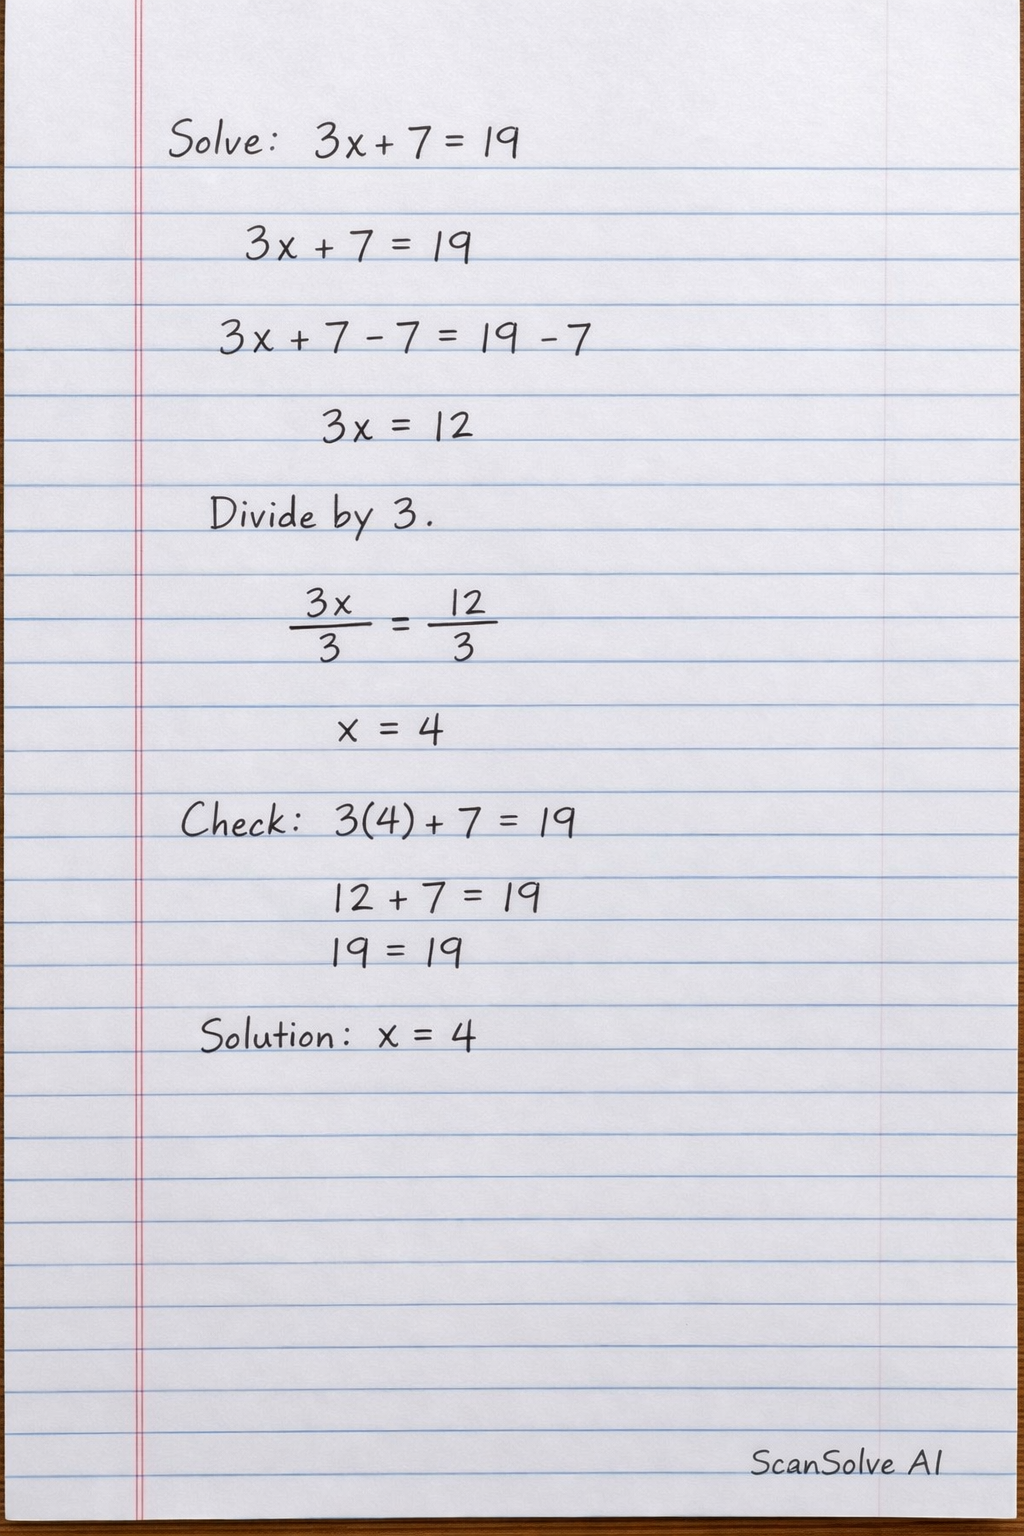 Solve: 3x + 7 = 19
3x + 7 = 19
3x + 7 - 7 = 19 - 7
3x = 12
Divide by 3.
3x/3 = 12/3
x = 4
Check: 3(4) + 7 = 19
12 + 7 = 19
19 = 19
Solution: x = 4
ScanSolve AI